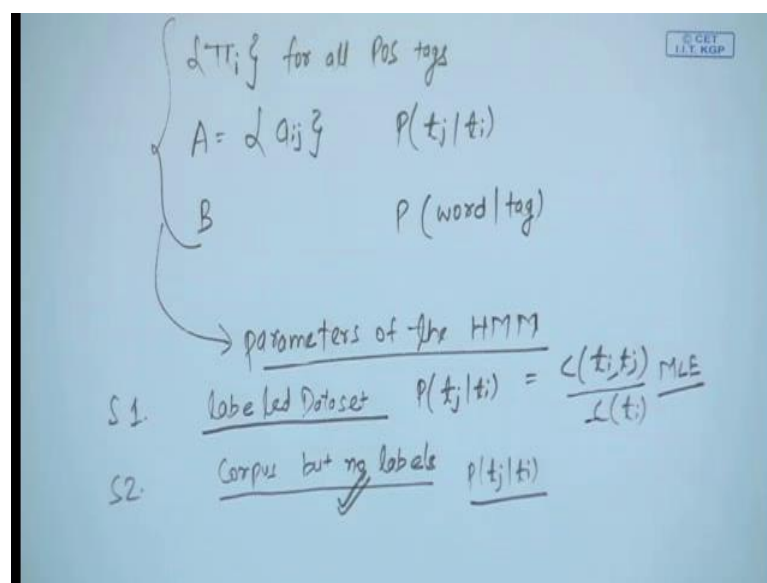 © CET
I.I.T. KGP
{πi} for all POS tags
A = {aij} P(tj|ti)
B P(word|tag)
parameters of the HMM
S1. labeled Dataset P(tj|ti) = C(ti,tj) / C(ti) MLE
S2. Corpus but no labels P(tj|ti)